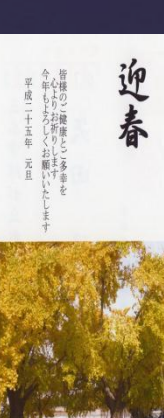 迎春
皆様のご健康とご多幸を
心よりお祈りします
今年もよろしくお願いいたします
平成二十五年 元旦